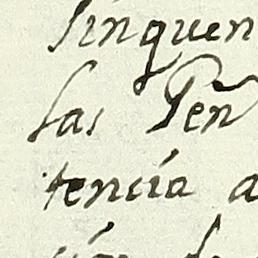 sinquen
las Pen
tencia a